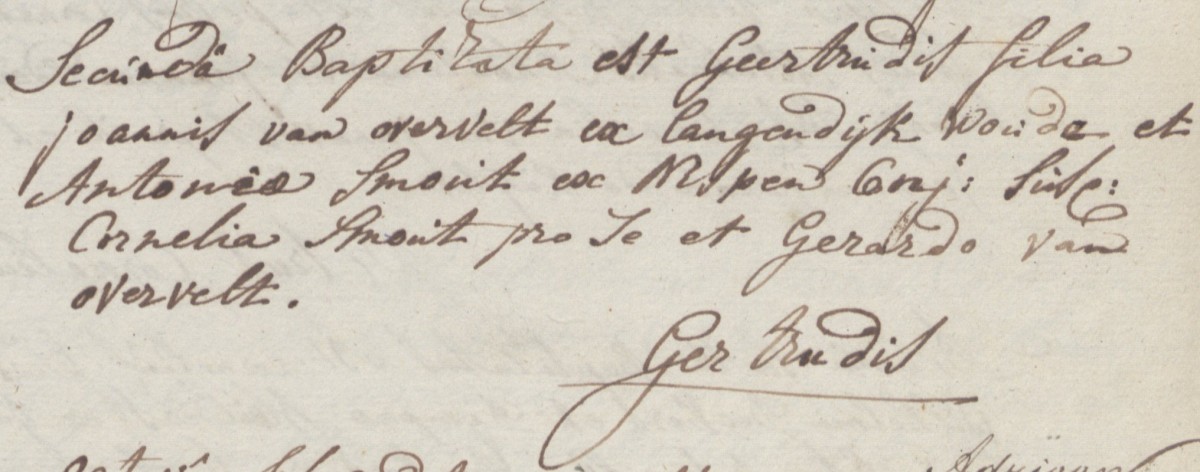 Secunda Baptizata est Geertrudis filia
joannis van overvelt ex langendijk woude et
Antoniæ Smout ex Nispen Conj: Susc:
Cornelia Smout pro se et Gerardo van
overvelt.
Gertrudis